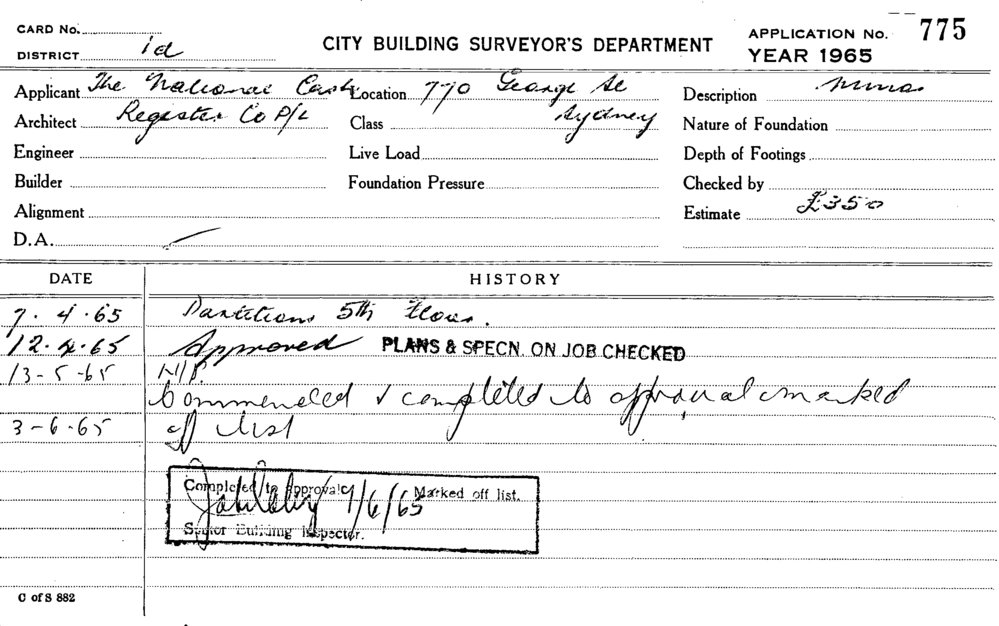 CARD No.
DISTRICT id
CITY BUILDING SURVEYOR'S DEPARTMENT
APPLICATION No. 775
YEAR 1965
Applicant The National Cash
Location 770 George St
Description minor
Architect Register Co P/L
Class Sydney
Nature of Foundation
Engineer
Live Load
Depth of Footings
Builder
Foundation Pressure
Checked by
Alignment
Estimate £350
D.A.
DATE HISTORY
7.4.65 Partitions 5th Floor.
12.4.65 Approved PLANS & SPECN. ON JOB CHECKED
13-5-65 N/P.
Commenced & completed to approval marked
3-6-65 off list
Completed to approval: Marked off list.
9/6/65
Senior Building Inspector.
C of S 882